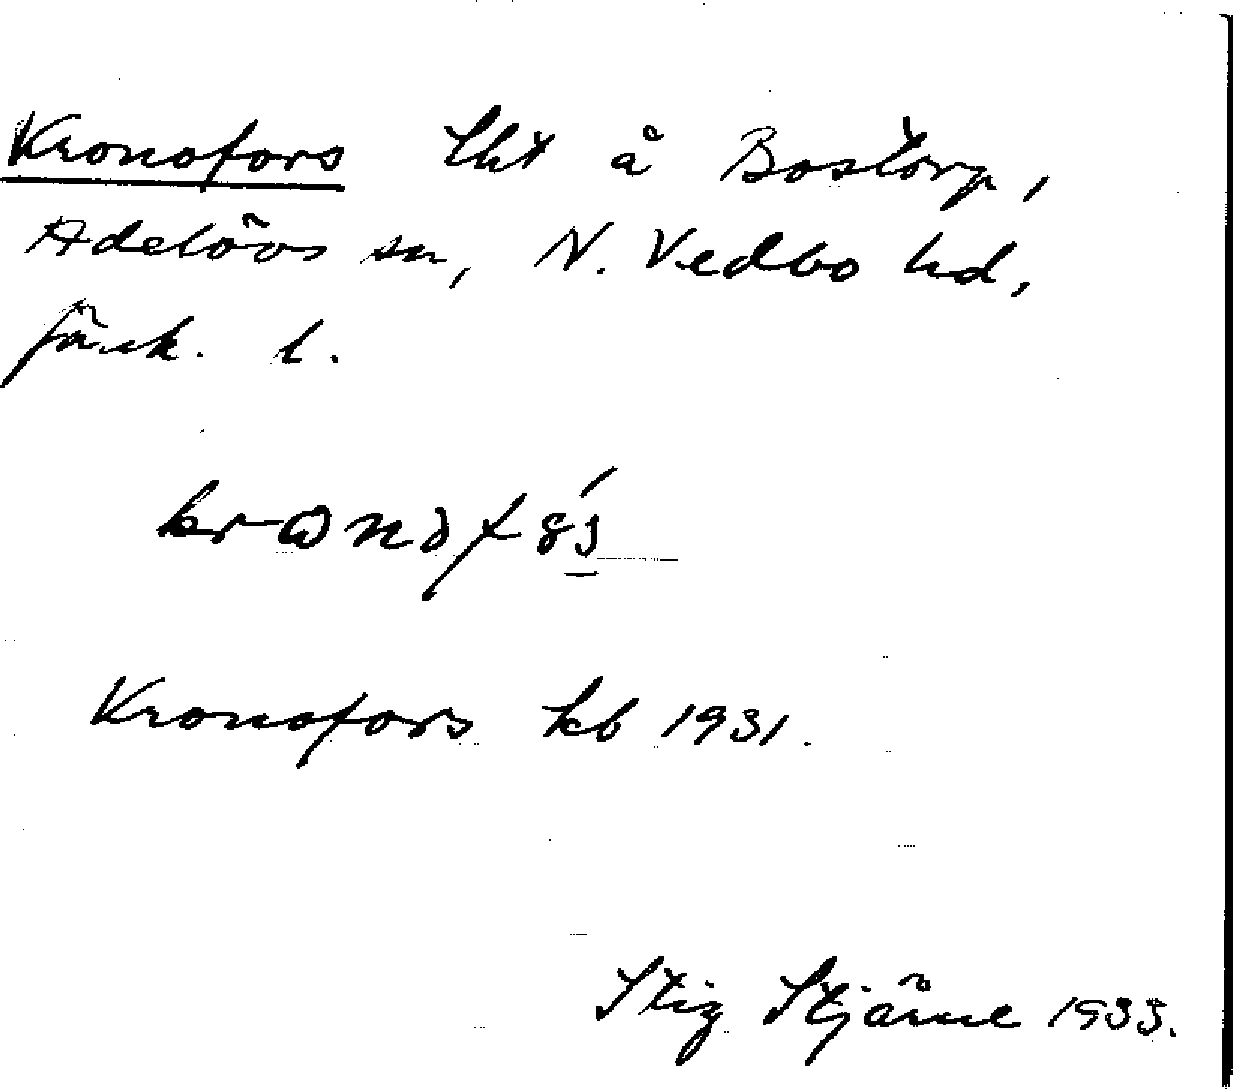 Kronofors lht å Bostorp,
Adelövs sn, N. Vedbo hd,
Jönk. l.
Kronofors kb 1931.
Stig Stjärne 1933.